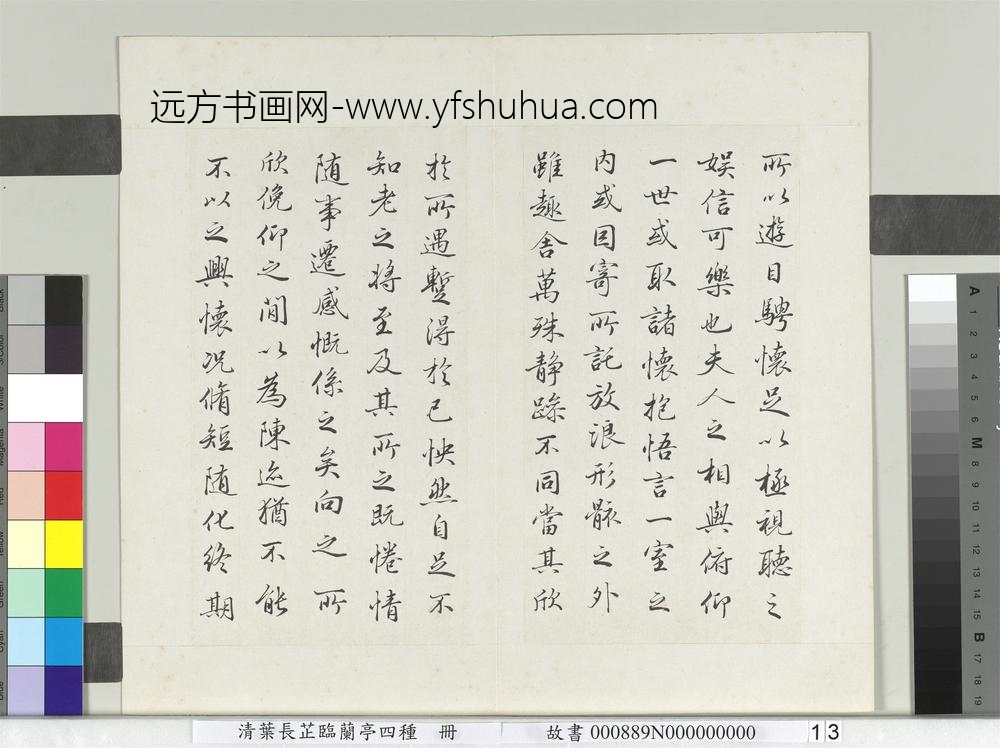 远方书画网-www.yfshuhua.com
所以遊目騁懷足以極視聽之
娛信可樂也夫人之相與俯仰
一世或取諸懷抱悟言一室之
內或因寄所託放浪形骸之外
雖趣舍萬殊静躁不同當其欣
於所遇蹔得於己怏然自足不
知老之將至及其所之既惓情
随事遷感慨係之矣向之所
欣俛仰之閒以為陳迹猶不能
不以之興懷况脩短随化終期
清葉長芷臨蘭亭四種 冊 故書 000889N000000000 13
A 1 2 3 4 5 6 M 8 9 10 11 12 13 14 15 B 17 18 19